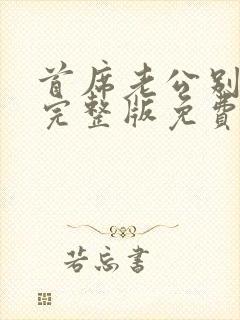 首席老公别
完整版免费
若忘书